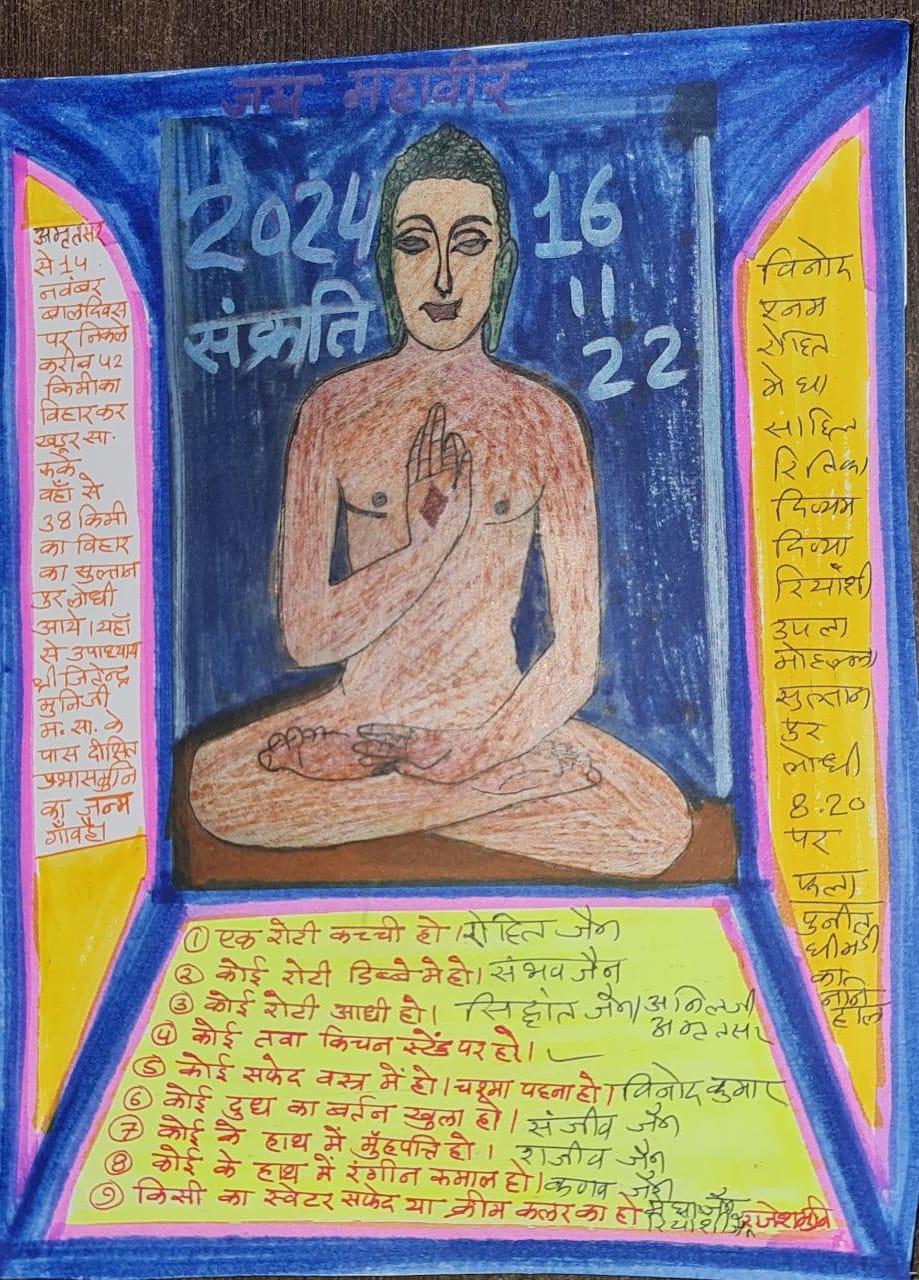 जय महावीर
2024
संक्रांति
16
11
22
अमृतसर
से 14
नवंबर
बालदिवस
पर निकले
करीब 52
किमीका
विहारकर
खडूर सा.
रुके
वहाँ से
38 किमी
का विहार
का सुल्तान
पुर लोधी
आये। यहाँ
से उपाध्याय
श्री जितेन्द्र
मुनिजी
म. सा. के
पास दीक्षित
प्रभासमुनि
का जन्म
गाँव है।
विनोद
रोहित
मेघा
साहिल
रितिका
दिव्यम
दिव्या
रियांशी
उपला
मोहल्ला
सुल्तान
पुर
लोधी
8.20
पर
फला
पुनीत
① एक रोटी कच्ची हो। रोहित जैन
② कोई रोटी डिब्बे मे हो। संभव जैन
③ कोई रोटी आधी हो। सिद्धांत जैन। अनिलजी
अमृतसर
④ कोई तवा किचन स्टेंड पर हो।
⑤ कोई सफेद वस्त्र में हो। चश्मा पहना हो। विनोद कुमार
⑥ कोई दुध का बर्तन खुला हो। संजीव जैन
⑦ कोई के हाथ में मुँहपत्ति हो। राजीव जैन
⑧ कोई के हाथ में रंगीन रुमाल हो। जैन
⑨ किसी का स्वेटर सफेद या क्रीम कलर का हो मेघा जैन
रियांशी जैन राजेशमुनि